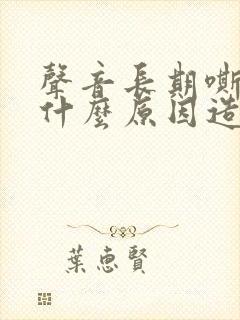 聲音長期嘶
什麼原因造
葉惠賢